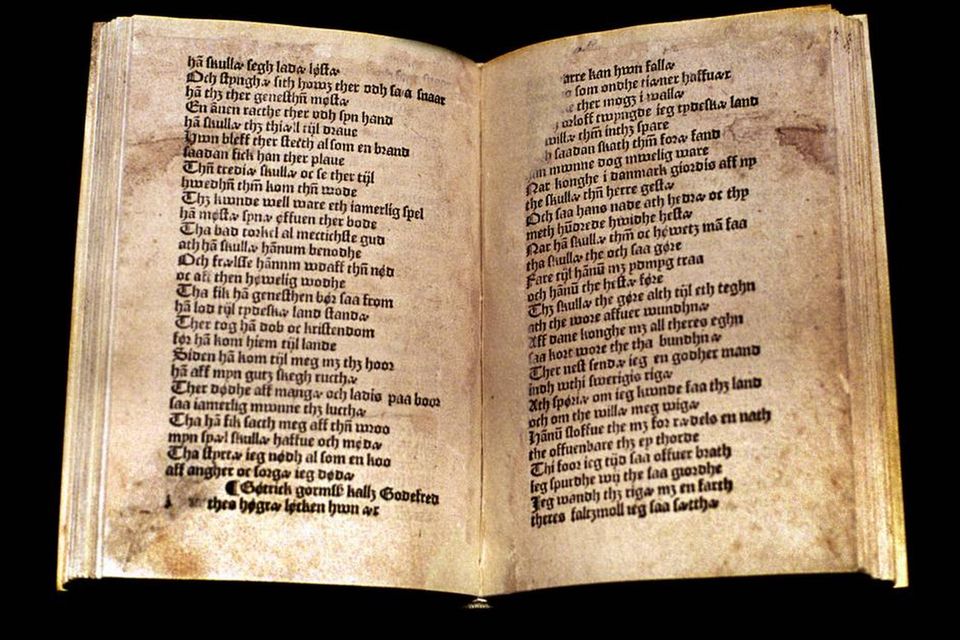 hā skullæ segh ladæ løstæ
Och stynghæ sith howz ther odh sa a snaar
hā thz ther genesthñ møstæ
En āuen racthe ther odh syn hand
hā skullæ thz thiæll tijl draue
Hwn bleff ther stecth al som en brand
saadan fick han ther plaue
Thñ trediæ skullæ oc se ther tijl
hwedhñ thm̄ kom thñ wode
Thz kwnde well ware eth iamerlig spel
hā møstæ synæ øffuen ther bode
Tha bad torkel al mectichste gud
ath hā skullæ hānum benodhe
Och frælsse hānnm wdaff thñ nød
oc aff then høwelig wodhe
Tha fik hā genesthen bør saa from
hā lod tijl tydeskæ land standæ
Ther tog hā dob oc kristendom
før hā kom hiem tijl lande
Siden hā kom tijl meg mz thz hoor
hā aff myn gutz skegh rycthæ
Ther dødhe aff mangæ och ladis paa boor
saa iamerlig mwnne thz lucthæ
Tha hā fik sacth meg aff thñ wroo
myn spæl skullæ haffue och mødæ
Tha styrtæ ieg nødh al som en koo
aff angher oc sorgæ ieg dødæ
¶Gøtrick gormsß kallz Godefred
thes høgræ løcken hwn ær
arre kan hwn fallæ
som ondhe tiæner haffuær
ther mogz i wallæ
orloff twyngde ieg tydeskæ land
willæ thm̄ inthz spare
h saadan skath thm̄ foræ fand
mwnne dog mwelig ware
Nar konghe i danmark giordis aff ny
the skullæ thñ herre gestæ
Och saa hans nade ath hedræ oc thy
meth hūdrede hwidhe hestæ
Nar hā skullæ thm̄ oc høwetz mā faa
tha skullæ the och saa gøre
Fare tijl hānū mz ydmyg traa
och hānū the hestæ føre
Thz skullæ the gøre alth tijl eth teghn
ath the wore affuer wundhnæ
Aff dane konghe mz all theres eghn
saa kort wore the tha bundhnæ
Ther nest sendæ ieg en godher mand
indh wthi swerigis rige
Ath spøriæ om ieg kwnde faa thz land
och om the willæ meg wige
Hānū sloffue the mz for rædels en nath
the offuenbare thz ey thorde
Thi foor ieg tijd saa offuer brath
Ieg spurdhe wij the saa giordhe
Ieg wandh thz rigæ mz en farth
theres faltzmoll ieg saa sætthæ